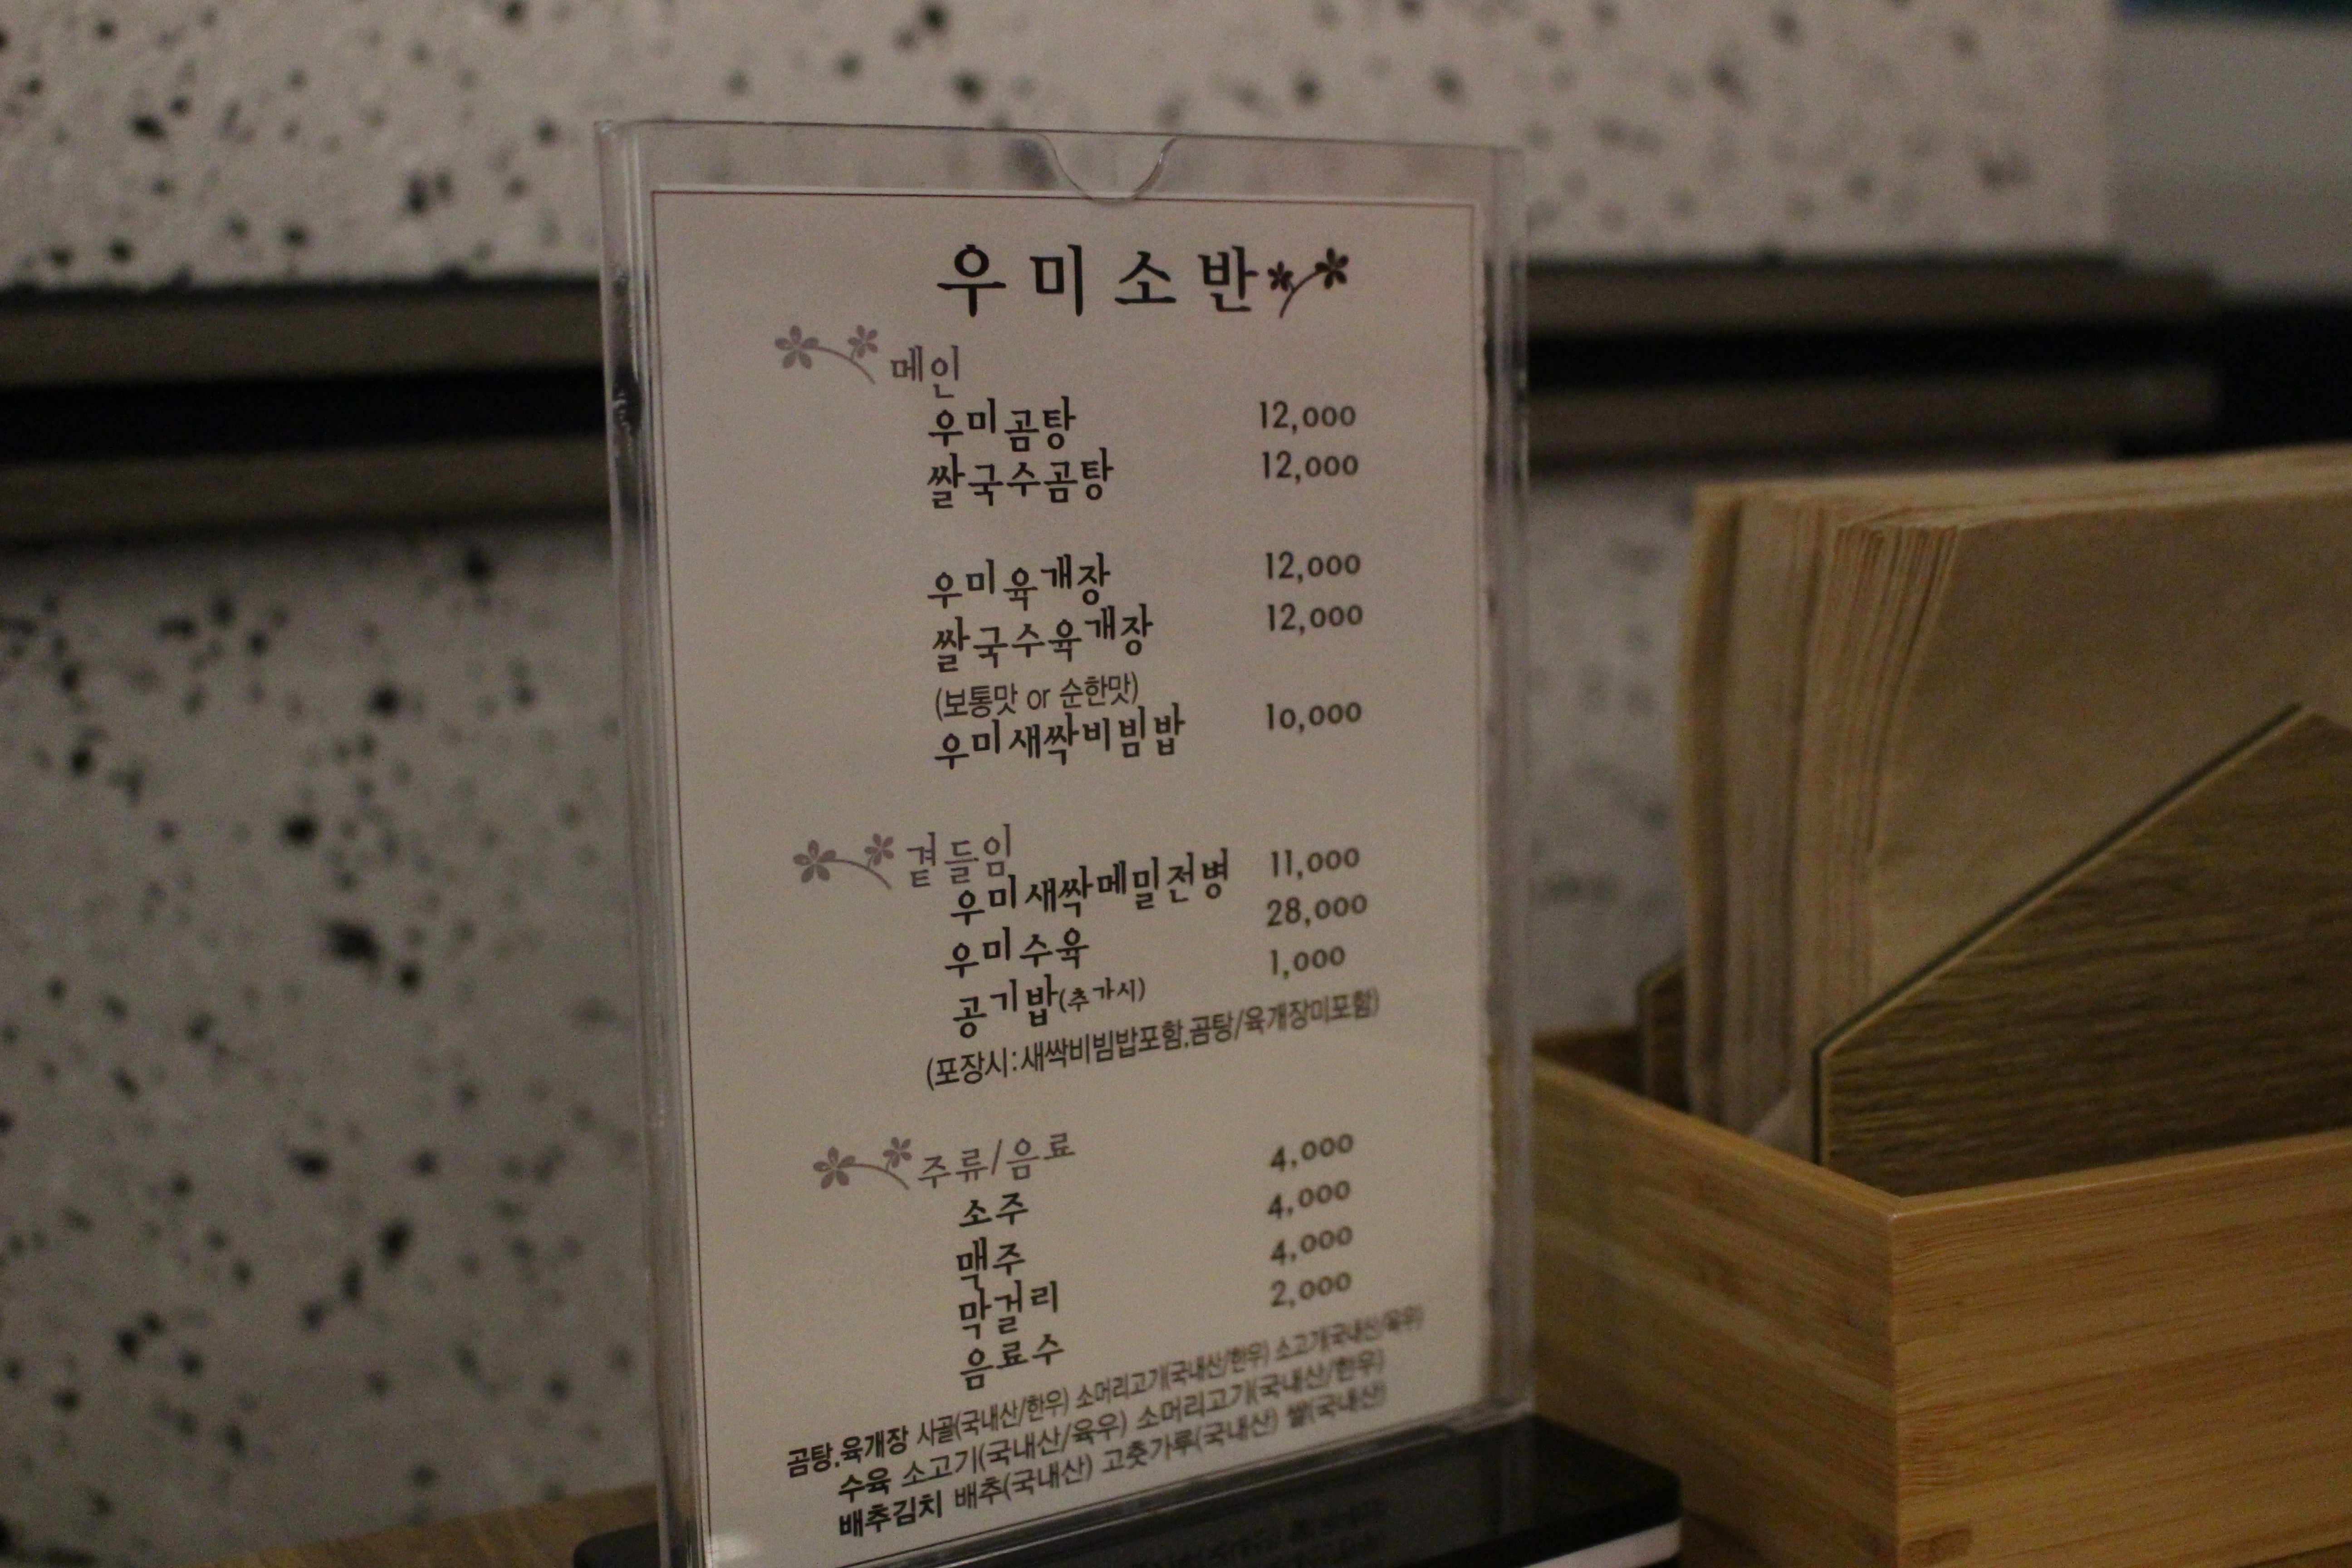 우미소반
메인
우미곰탕 12,000
쌀국수곰탕 12,000
우미육개장 12,000
쌀국수육개장 12,000
(보통맛 or 순한맛)
우미새싹비빔밥 10,000
곁들임
우미새싹메밀전병 11,000
우미수육 28,000
공기밥(추가시) 1,000
(포장시:새싹비빔밥포함,곰탕/육개장미포함)
주류/음료
소주 4,000
맥주 4,000
막걸리 4,000
음료수 2,000
곰탕,육개장 사골(국내산/한우) 소머리고기(국내산/한우) 소고기(국내산/육우)
수육 소고기(국내산/육우) 소머리고기(국내산/한우)
배추김치 배추(국내산) 고춧가루(국내산) 쌀(국내산)